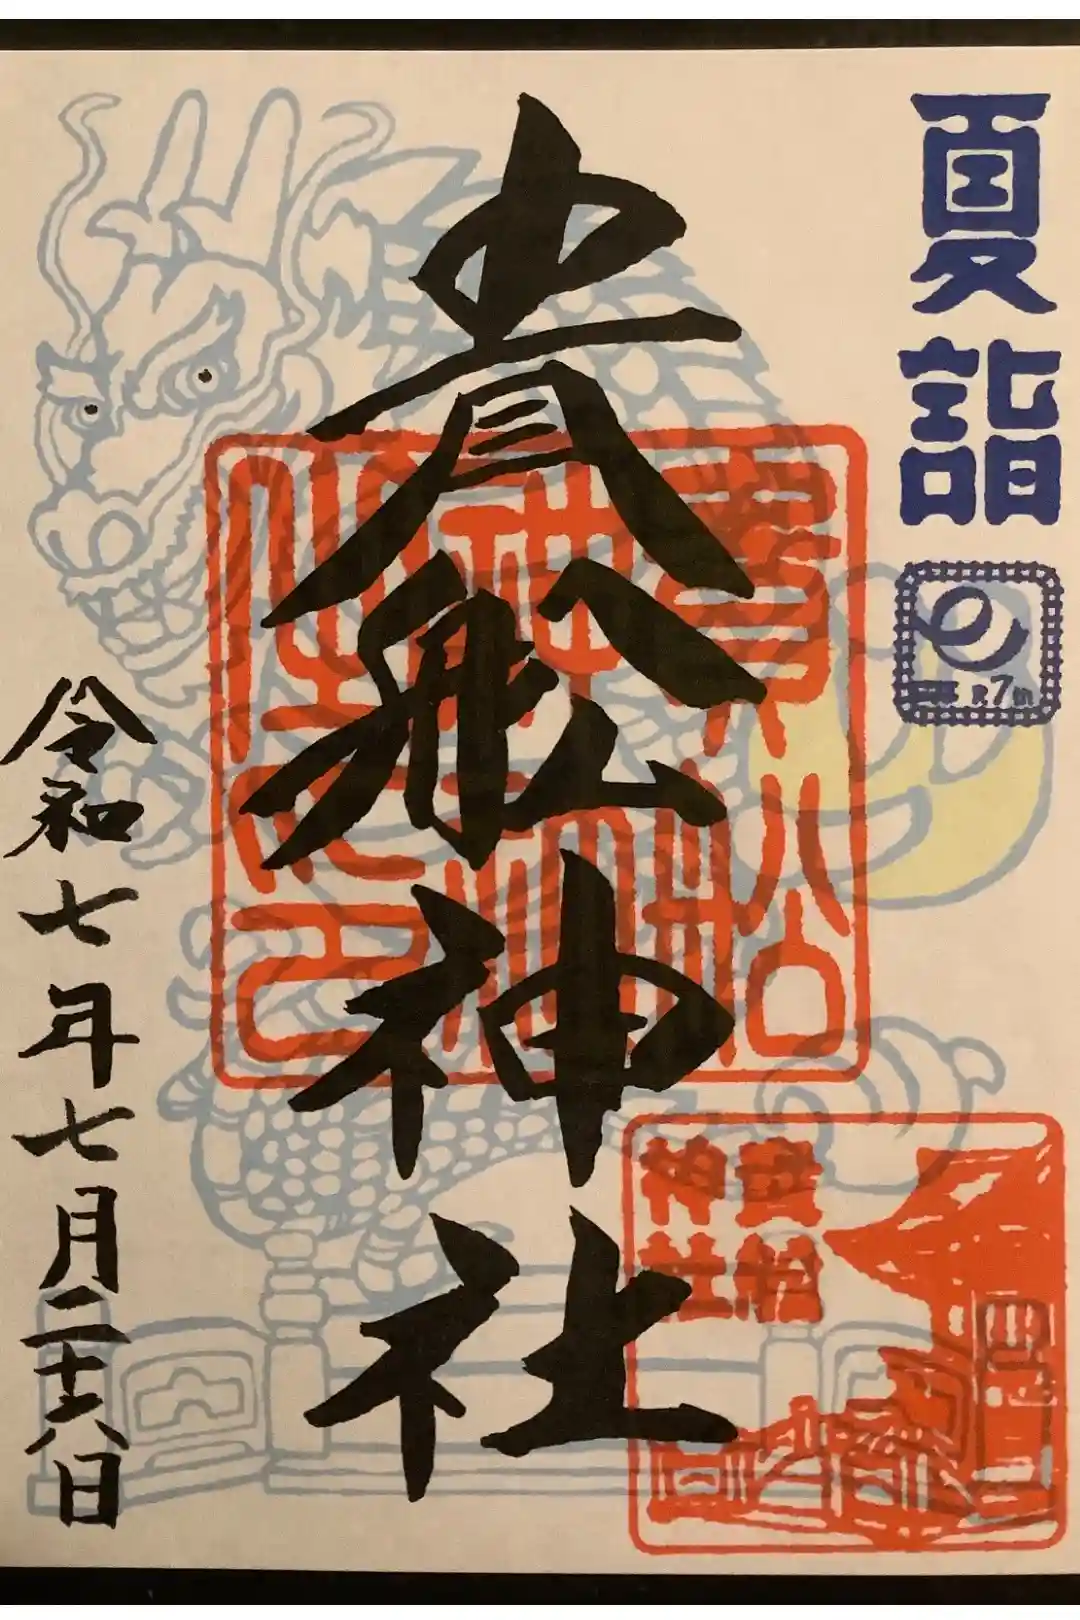 夏詣
の
R7
貴船神社
貴船
神社
令和七年七月二十八日